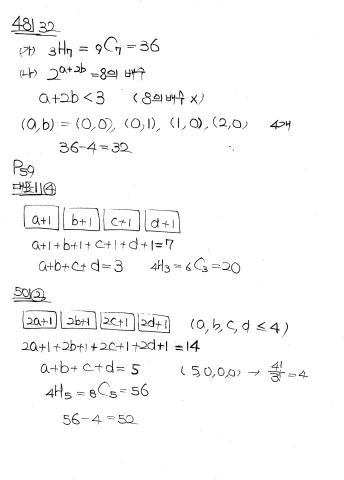 48) 32
(가) ₃H₇ = ₉C₇ = 36
(나) 2^(a+2b) = 8의 배수
a+2b < 3 (8의 배수 x)
(a,b) = (0,0), (0,1), (1,0), (2,0) 4개
36-4 = 32 ∴
P59
대표11) ④
a+1 b+1 c+1 d+1
a+1+b+1+c+1+d+1=7
a+b+c+d=3 ₄H₃ = ₆C₃ = 20
50) ②
2a+1 2b+1 2c+1 2d+1 (a,b,c,d ≤ 4)
2a+1+2b+1+2c+1+2d+1=14
a+b+c+d=5 (5,0,0,0) → 4!/3! = 4
₄H₅ = ₈C₅ = 56
56-4=52